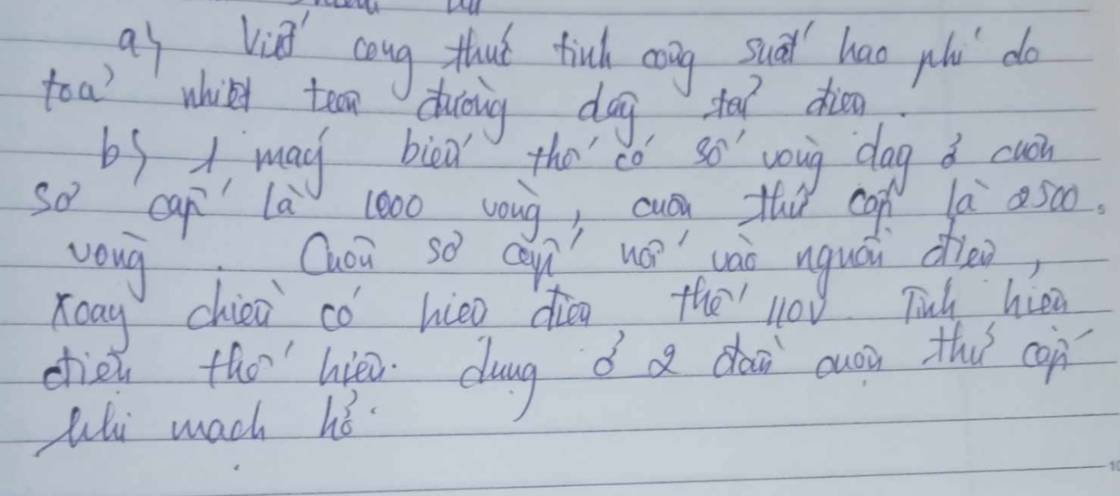 a) Viết công thức tính công suất hao phí do
toả nhiệt trên đường dây tải điện.
b) 1 máy biến thế có số vòng dây ở cuộn
sơ cấp là 1000 vòng, cuộn thứ cấp là 2500.
vòng. Cuộn sơ cấp nối vào nguồn điện,
xoay chiều có hiệu điện thế 110V. Tính hiệu
điện thế hiệu. dụng ở 2 đầu cuộn thứ cấp
khi mạch hở.